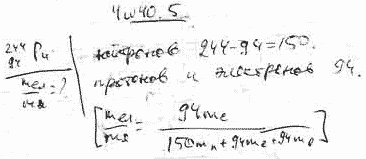 4w40.5.
²⁴⁴₉₄Pu
нейтронов 244-94=150.
mэл/mя=?
протонов и электронов 94.
[mэл/mя = 94me/150mn+94me+94mp]